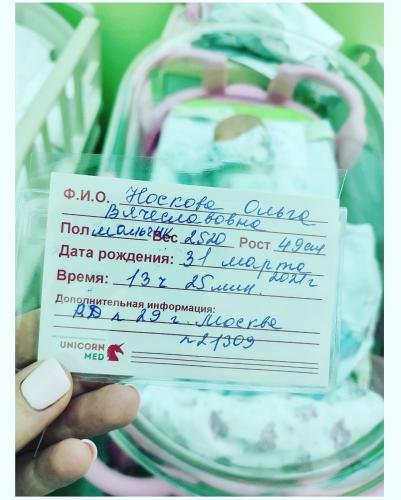 Ф.И.О. Носкова Ольга
Вячеславовна
Пол мальчик Вес 2520 Рост 49 см
Дата рождения: 31 марта
2021г
Время: 13 ч 25 мин.
Дополнительная информация:
РД № 29 г. Москва
№21309
UNICORN
MED